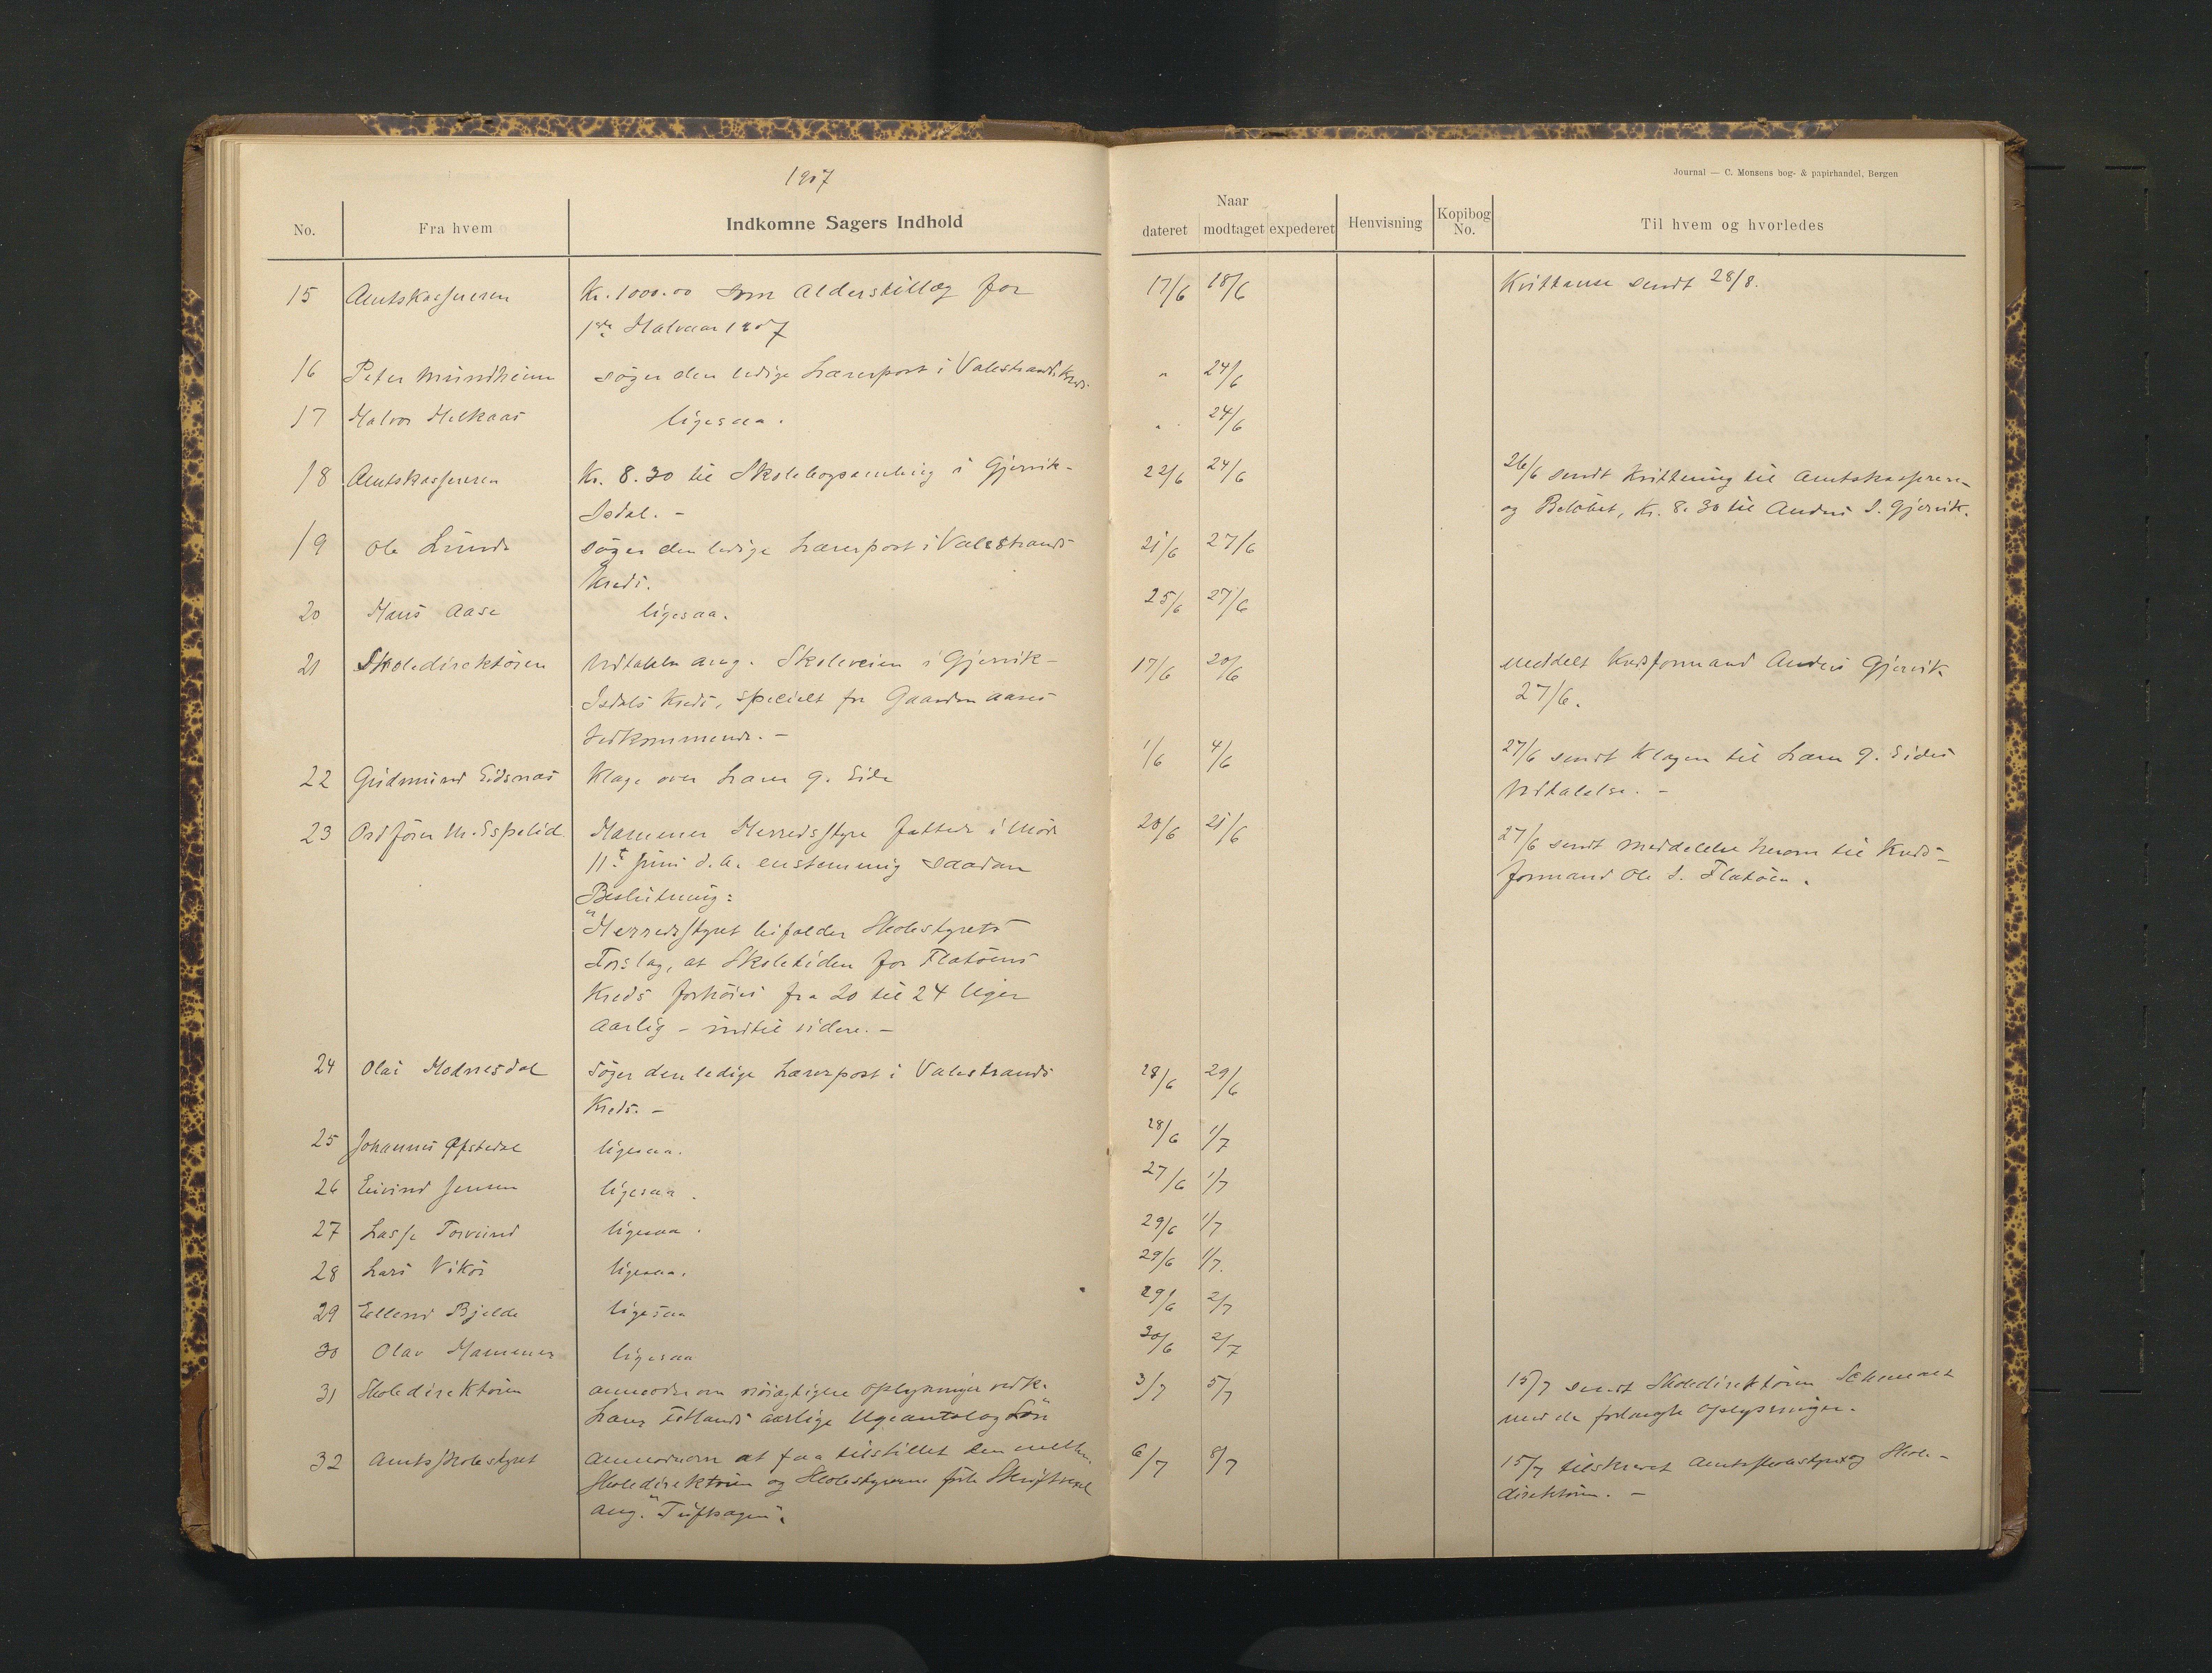 1907
Journal — C. Monsens bog- & papirhandel, Bergen
No.
Fra hvem
Indkomne Sagers Indhold
Naar
dateret modtaget expederet
Henvisning
Kopibog No.
Til hvem og hvorledes
15 Amtskasseren Kr. 1000.00 som Alderstillæg for 17/6 18/6 Kvittanse sendt 28/8.
1ste Halvaar 1907
16 Peter Mundheim søger den ledige Lærerpost i Valestrands Kreds. " 24/6
17 Halvor Helkaas ligesaa. " 24/6
18 Amtskasseren Kr. 8.30 til Skolebogsamling i Gjervik- 22/6 24/6 26/6 sendt Kvittering til Amtskasseren
Isdal. - og Beløbet, Kr. 8.30 til Anders I. Gjervik.
19 Ole Lunde søger den ledige Lærerpost i Valestrands 21/6 27/6
Kreds.
20 Hans Aase ligesaa. 25/6 27/6
21 Skoledirektøren Udtalelse ang. Skoleveien i Gjervik- 17/6 20/6 Meddelt Kredsformand Anders Gjervik
Isdals Kreds, specielt for Gaarden Aares 27/6.
Vedkommende. -
22 Gudmund Eidsnæs Klage over Lærer G. Eide 1/6 4/6 27/6 sendt Klagen til Lærer G. Eides
Udtalelse. -
23 Ordfører M. Espelid Hammer Herredsstyre fattede i Møde 20/6 21/6 27/6 sendt Meddelelse herom til Kreds-
11te Juni d.A. enstemmig saadan formand Ole I. Flatøen.
Beslutning:
"Herredsstyret bifalder Skolestyrets
Forslag, at Skoletiden for Flatøens
Kreds forhøies fra 20 til 24 Uger
aarlig - indtil videre. -
24 Olai Modnesdal Søger den ledige Lærerpost i Valestrands 28/6 29/6
Kreds. -
25 Johannes Øfstedal ligesaa. 28/6 1/7
26 Eivind Jensen ligesaa. 27/6 1/7
27 Lasse ligesaa. 29/6 1/7
28 Lars Vikør ligesaa. 29/6 1/7.
29 Ellend Bjelde ligesaa 29/6 2/7
30 Olav Hammer ligesaa 30/6 2/7
31 Skoledirektøren anmoder om nøiagtigere Oplysninger vedk. 3/7 5/7 15/7 sendt Skoledirektøren Schemaet
Lærer Fetlands aarlige Ugeantal og Løn med de forlangte Oplysninger.
32 Amtsskolestyret Anmoder om at faa tilstillet den mellem 6/7 8/7 15/7 tilskrevet Amtsskolestyret og Skole-
Skoledirektøren og Skolestyrerne førte Skriftvexel direktøren. -
ang. "Tuftsagen".